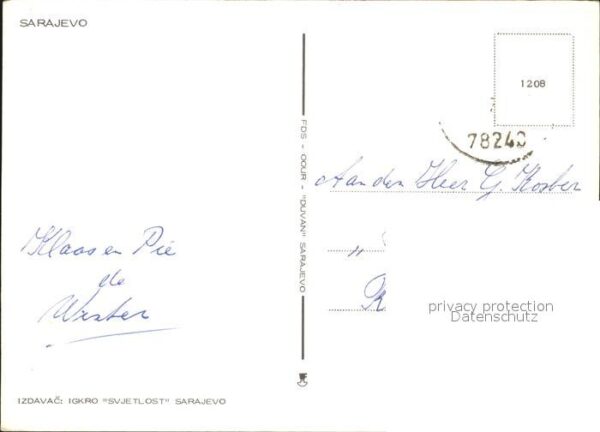 SARAJEVO
1208
78240
FDS - OOUR - "DUVAN" SARAJEVO
Aan den Heer G. Koster
"
Klaas en Pie
de
Wester
privacy protection
Datenschutz
IZDAVAČ: IGKRO "SVJETLOST" SARAJEVO